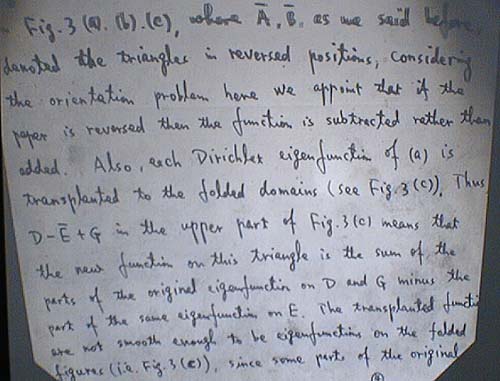 Fig. 3 (a). (b). (c), where Ā, B̄, as we said before,
denoted the triangles in reversed positions, considering
the orientation problem here we appoint that if the
paper is reversed then the function is subtracted rather than
added. Also, each Dirichlet eigenfunction of (a) is
transplanted to the folded domains (see Fig. 3 (c)), Thus
D-Ē+G in the upper part of Fig. 3 (c) means that
the new function on this triangle is the sum of the
parts of the original eigenfunction on D and G minus the
part of the same eigenfunction on E. The transplanted functi
are not smooth enough to be eigenfunctions on the folded
figures (i.e. Fig. 3 (c)), since some parts of the original